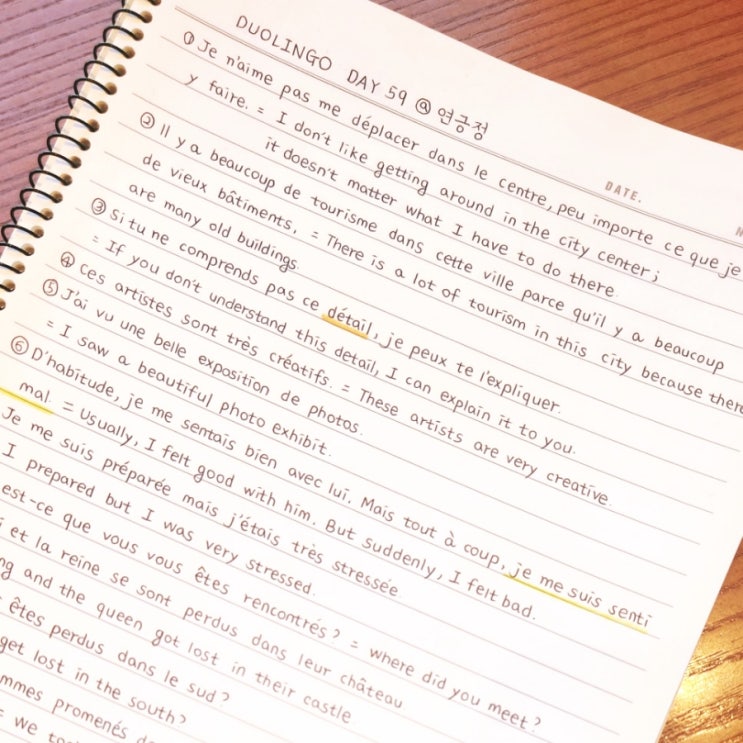 DUOLINGO DAY 59 @ 연긍정
DATE.
① Je n'aime pas me déplacer dans le centre, peu importe ce que je
y faire. = I don't like getting around in the city center;
it doesn't matter what I have to do there.
② Il y a beaucoup de tourisme dans cette ville parce qu'il y a beaucoup
de vieux bâtiments. = There is a lot of tourism in this city because there
are many old buildings.
③ Si tu ne comprends pas ce détail, je peux te l'expliquer.
= If you don't understand this detail, I can explain it to you.
④ Ces artistes sont très créatifs. = These artists are very creative.
⑤ J'ai vu une belle exposition de photos.
= I saw a beautiful photo exhibit.
⑥ D'habitude, je me sentais bien avec lui. Mais tout à coup, je me suis senti
mal. = Usually, I felt good with him. But suddenly, I felt bad.
Je me suis préparée mais j'étais très stressée
I prepared but I was very stressed.
est-ce que vous vous êtes rencontrés? = where did you meet?
et la reine se sont perdus dans leur château
and the queen got lost in their castle.
êtes perdus dans le sud?
get lost in the south?
promenés
= we